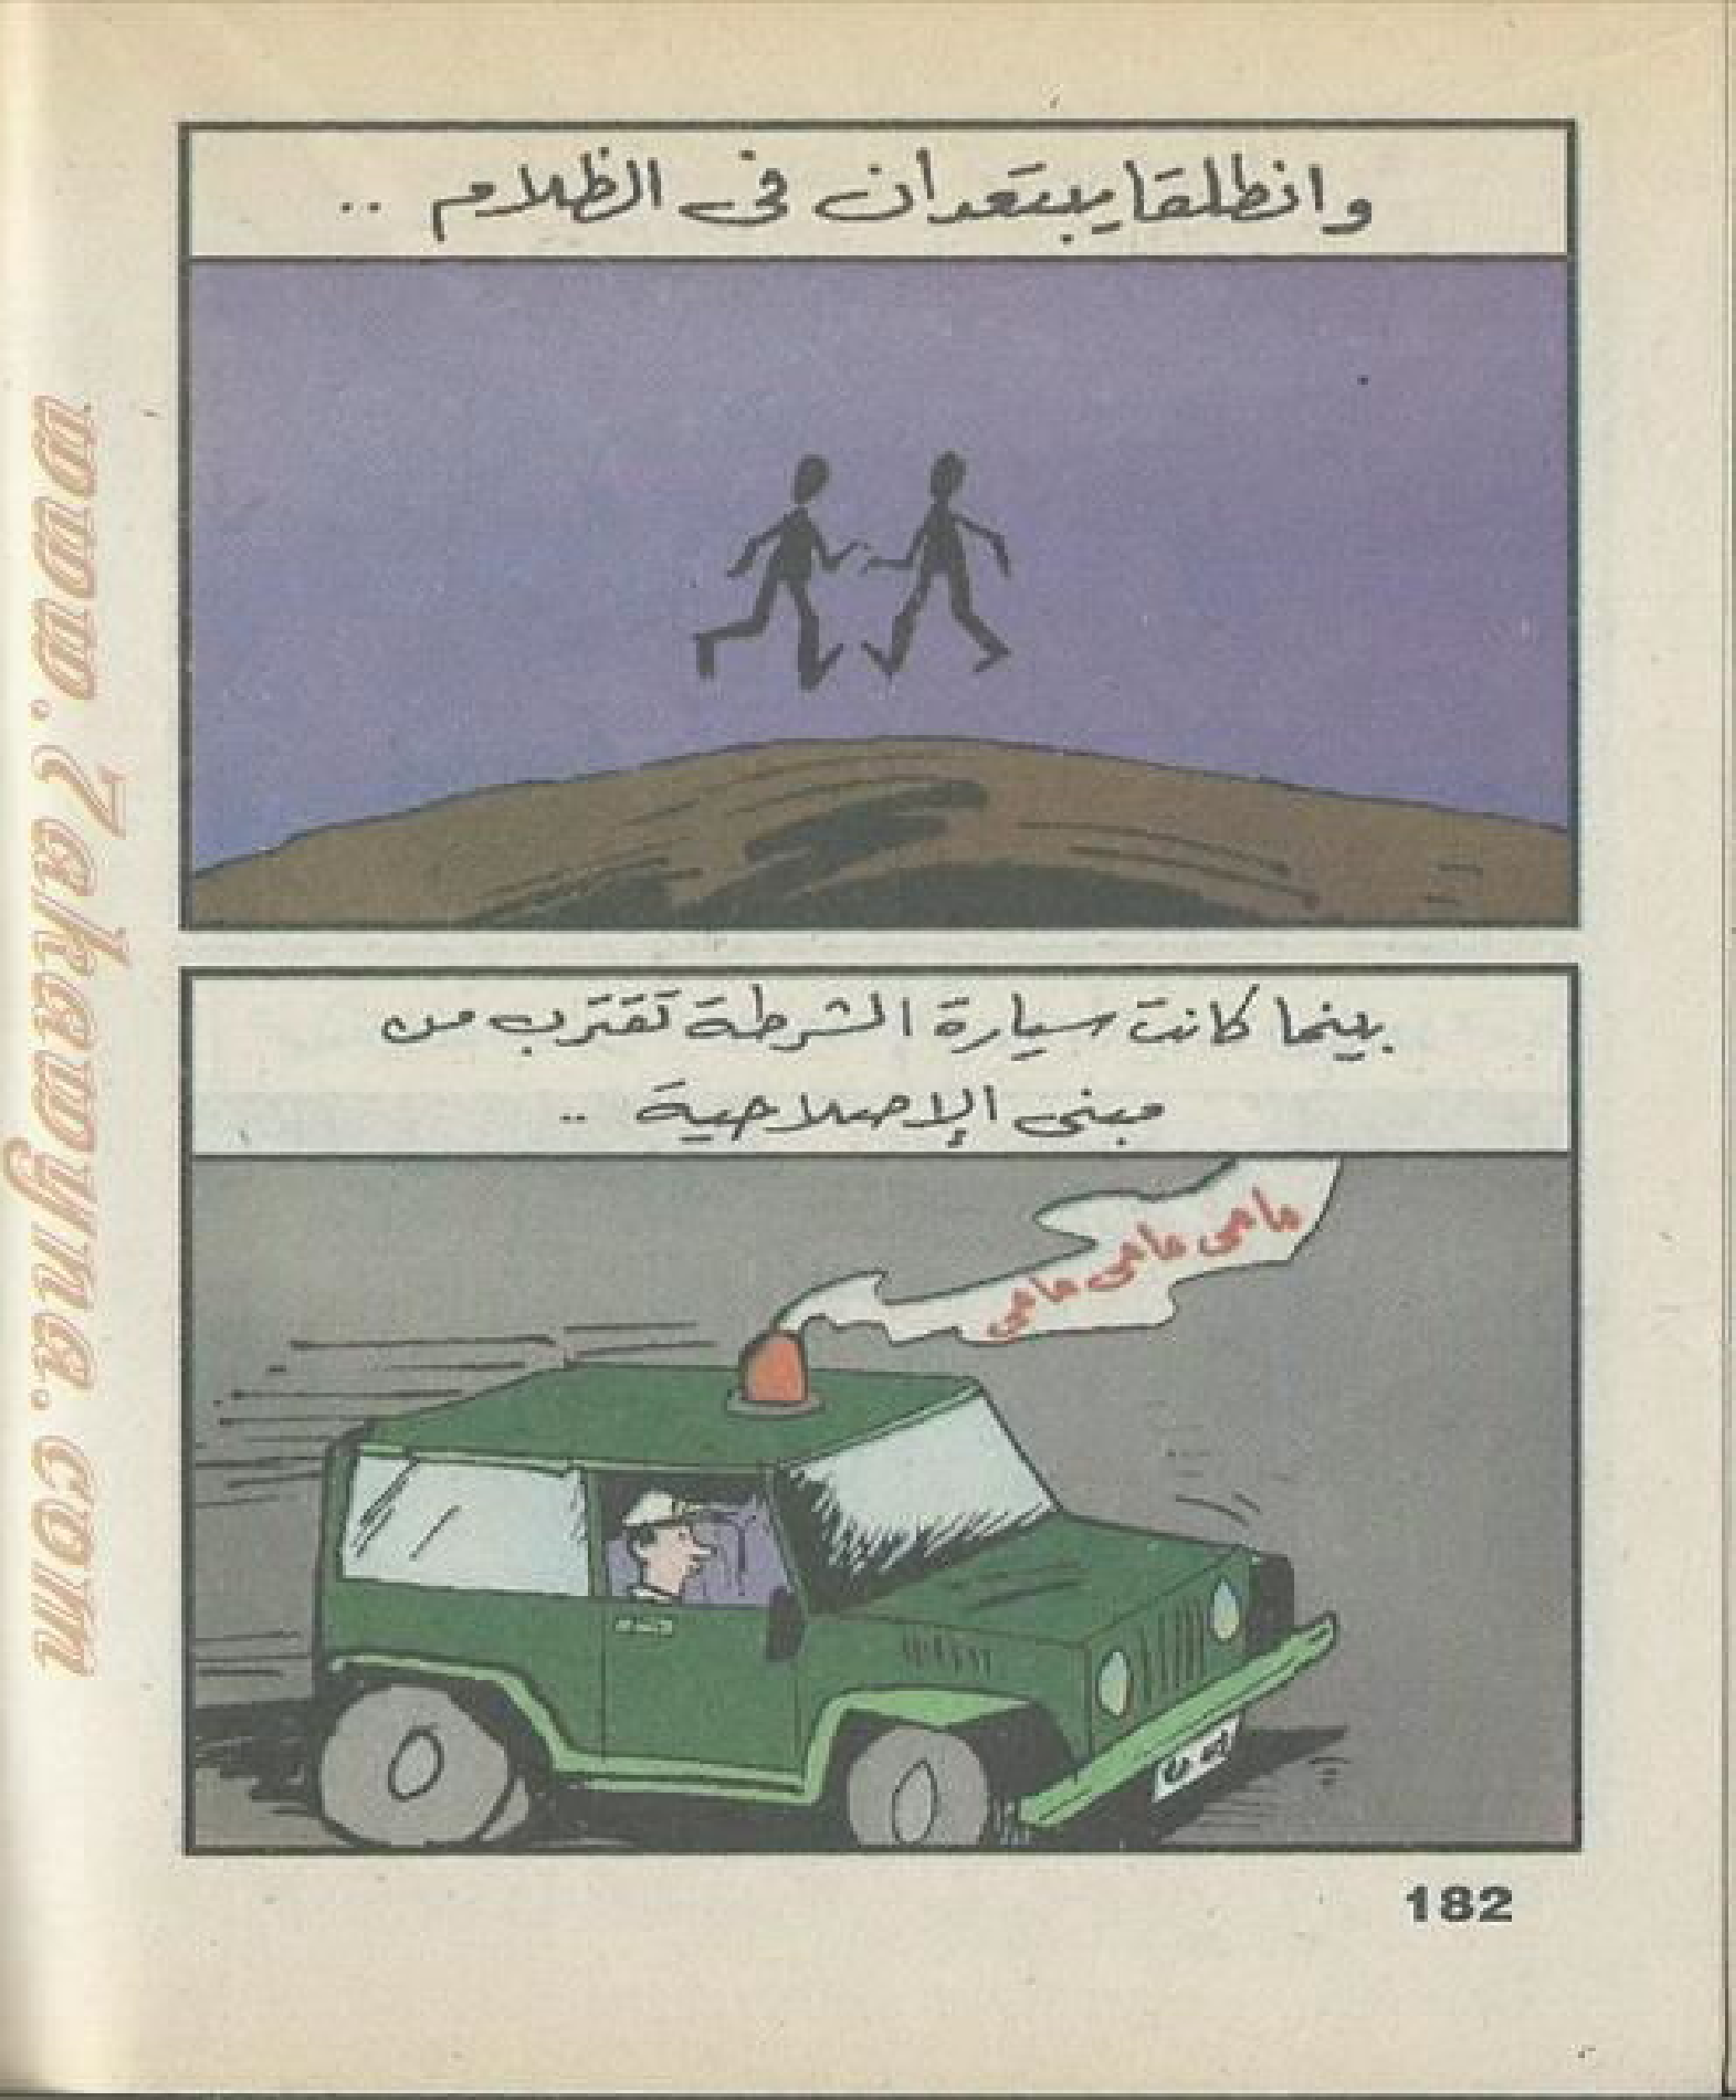 وانطلقا يبتعدان فى الظلام ..
بينما كانت سيارة الشرطة تقترب من
مبنى الإصلاحية ..
ماهى ماهى ماهى
182
www.7akawyina.com